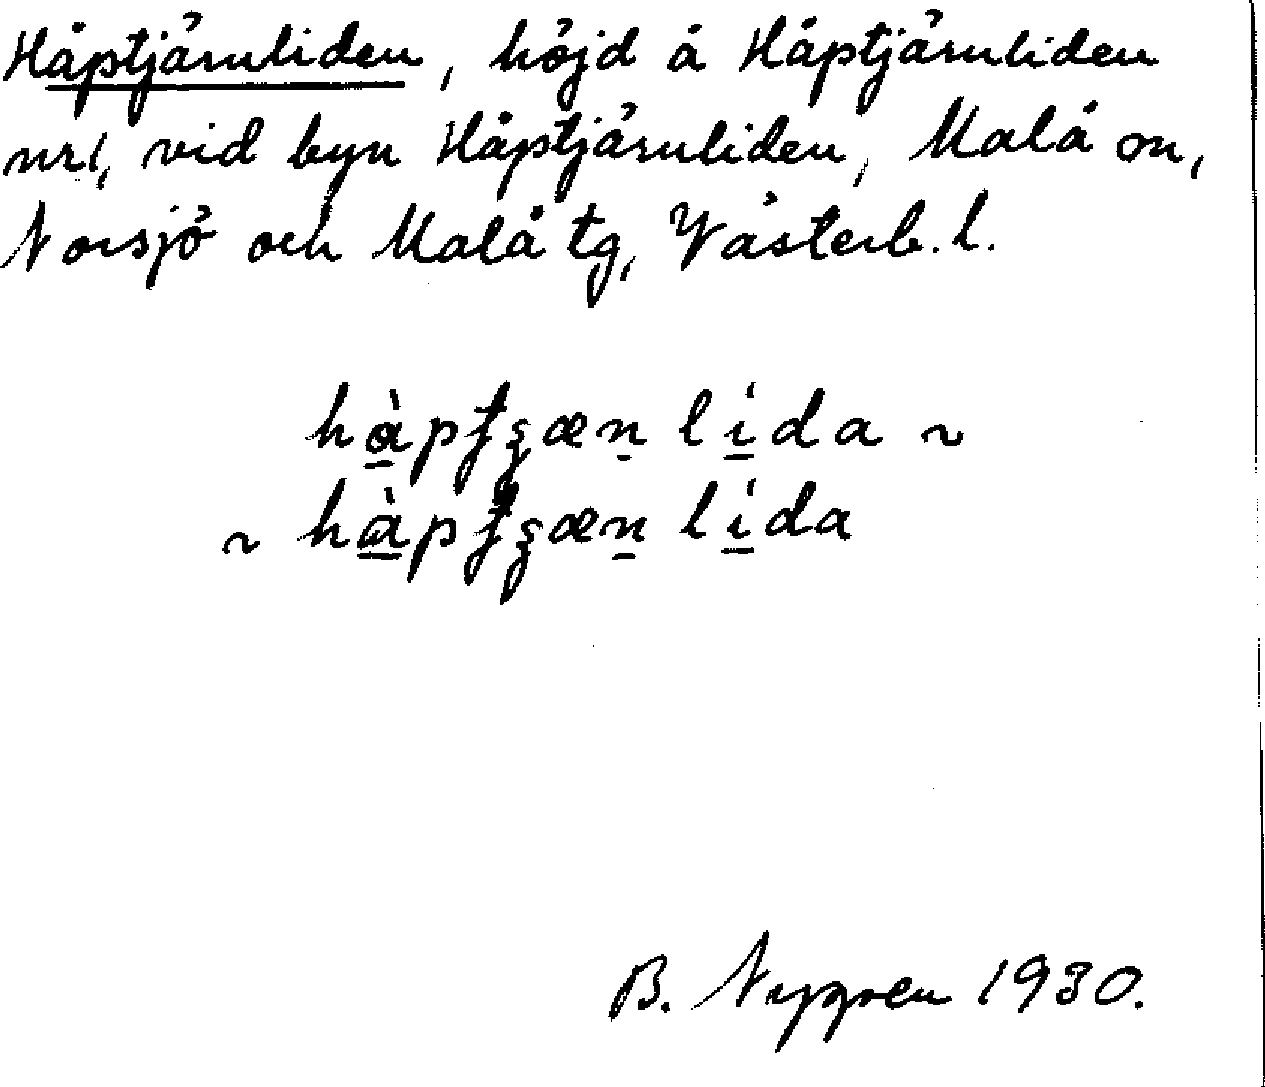 Håptjärnliden, höjd å Håptjärnliden
nr 1, vid byn Håptjärnliden, Malå sn,
Norsjö och Malå tg, Västerb. l.
hàpʈʐæn̠ lída ~
~ hàpʈʐæn̠ lída
B. Nygren 1930.